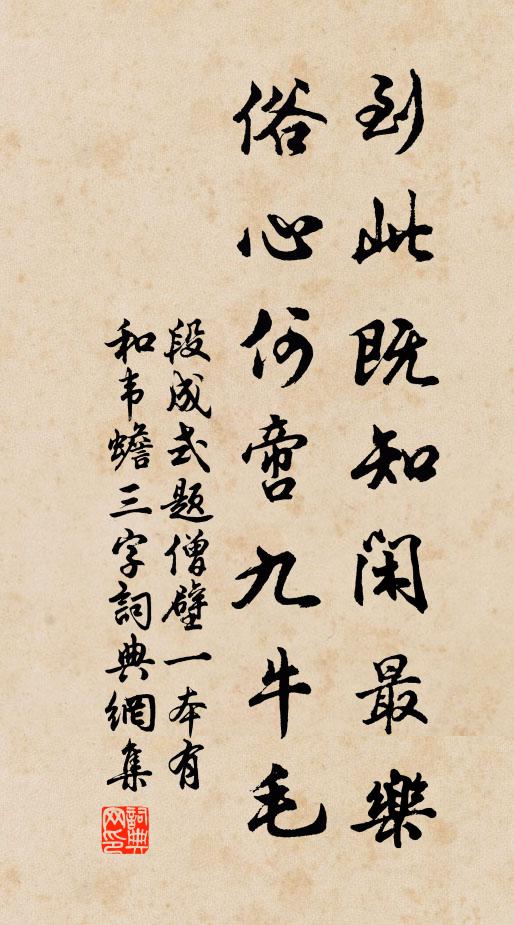 到此既知閑最樂
俗心何啻九牛毛
段成式題僧壁一本有
和韦蟾三字詞典網集
詞典网印